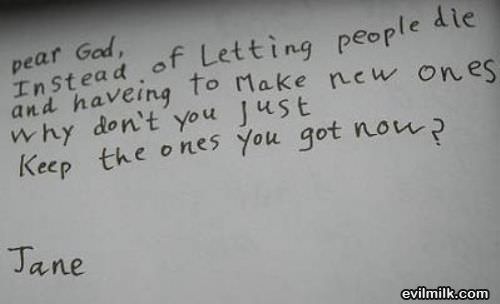 Dear God,
Instead of Letting people die
and haveing to Make new ones
why don't you Just
Keep the ones You got now?
Jane
evilmilk.com